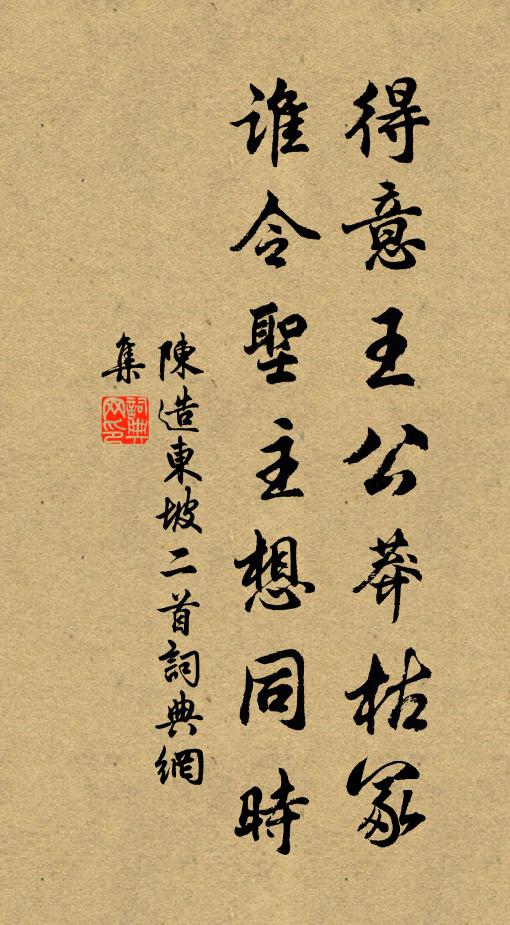 得意王公莽枯冢
誰令聖主想同時
陳造東坡二首詞典網
集
詞典網印